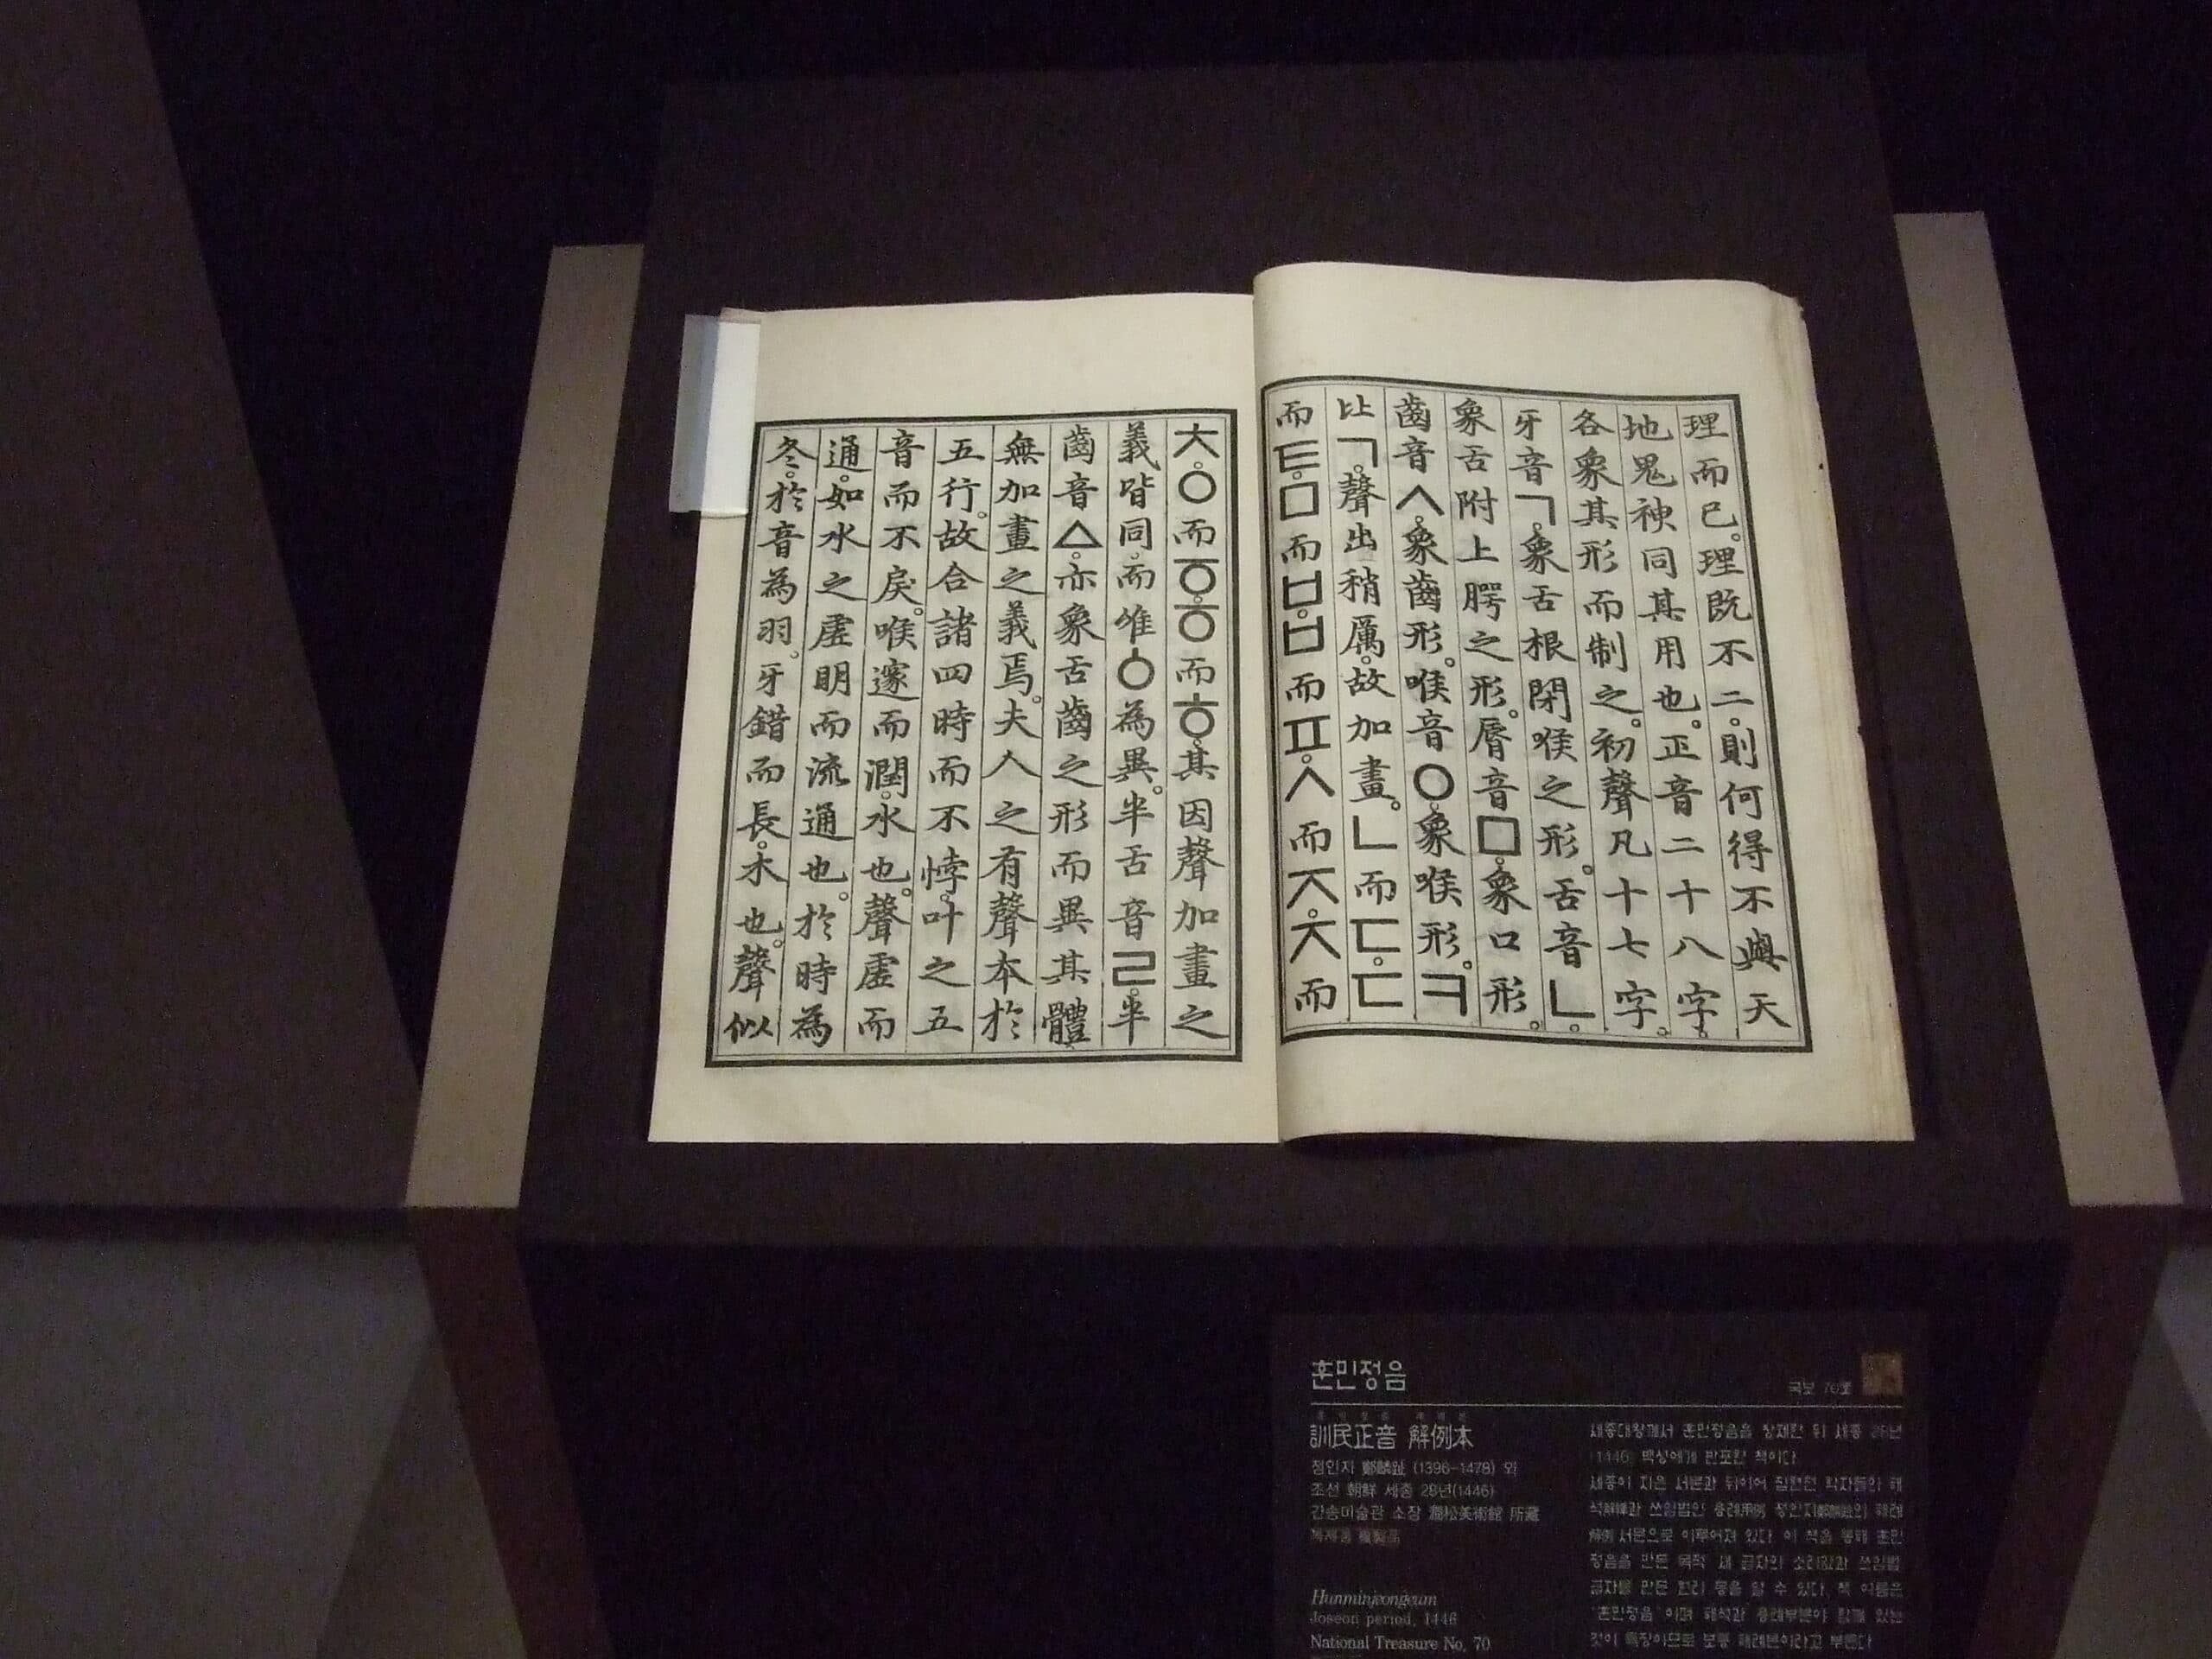 理而已。理既不二。則何得不與天
地鬼神同其用也。正音二十八字。
各象其形而制之。初聲凡十七字。
牙音ㄱ。象舌根閉喉之形。舌音ㄴ。
象舌附上腭之形。脣音ㅁ。象口形。
齒音ㅅ。象齒形。喉音ㅇ。象喉形。ㅋ
比ㄱ。聲出稍厲。故加畫。ㄴ而ㄷ。ㄷ
而ㅌ。ㅁ而ㅂ。ㅂ而ㅍ。ㅅ而ㅈ。ㅈ而
ㅊ。ㅇ而ㆆ。ㆆ而ㅎ。其因聲加畫之
義皆同。而唯ㆁ為異。半舌音ㄹ。半
齒音ㅿ。亦象舌齒之形而異其體。
無加畫之義焉。夫人之有聲本於
五行。故合諸四時而不悖。叶之五
音而不戾。喉邃而潤。水也。聲虛而
通。如水之虛明而流通也。於時為
冬。於音為羽。牙錯而長。木也。聲似
훈민정음
국보 70호
訓民正音 解例本
정인지 鄭麟趾 (1396-1478) 외
조선 朝鮮 세종 28년(1446)
간송미술관 소장 澗松美術館 所藏
복제품 複製品
Hunminjeongeum
Joseon period, 1446
National Treasure No. 70
세종대왕께서 훈민정음을 창제한 뒤 세종 28년
(1446) 백성에게 반포한 책이다.
세종이 지은 서문과 뒤이어 집현전 학자들의 해
석解釋과 쓰임법인 용례用例, 정인지鄭麟趾의 해례
解例 서문으로 이루어져 있다. 이 책을 통해 훈민
정음을 만든 목적, 새 글자의 소리값과 쓰임법,
글자를 만든 원리 등을 알 수 있다. 책 이름은
'훈민정음'이며 해석과 용례부분이 함께 있는
것이 특징이므로 보통 해례본이라고 부른다.